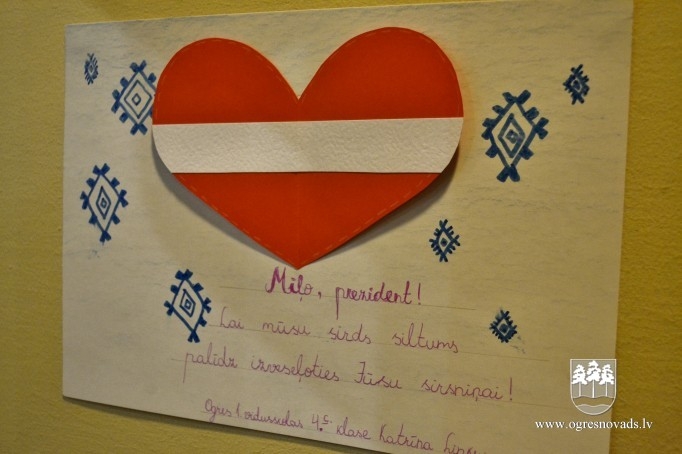 Miļo, prezident!
Lai mūsu sirds siltums
palīdz izveseļoties Jūsu sirsniņai!
Ogres 1. vidusskolas 4.c klase Katrīna
www.ogresnovads.lv